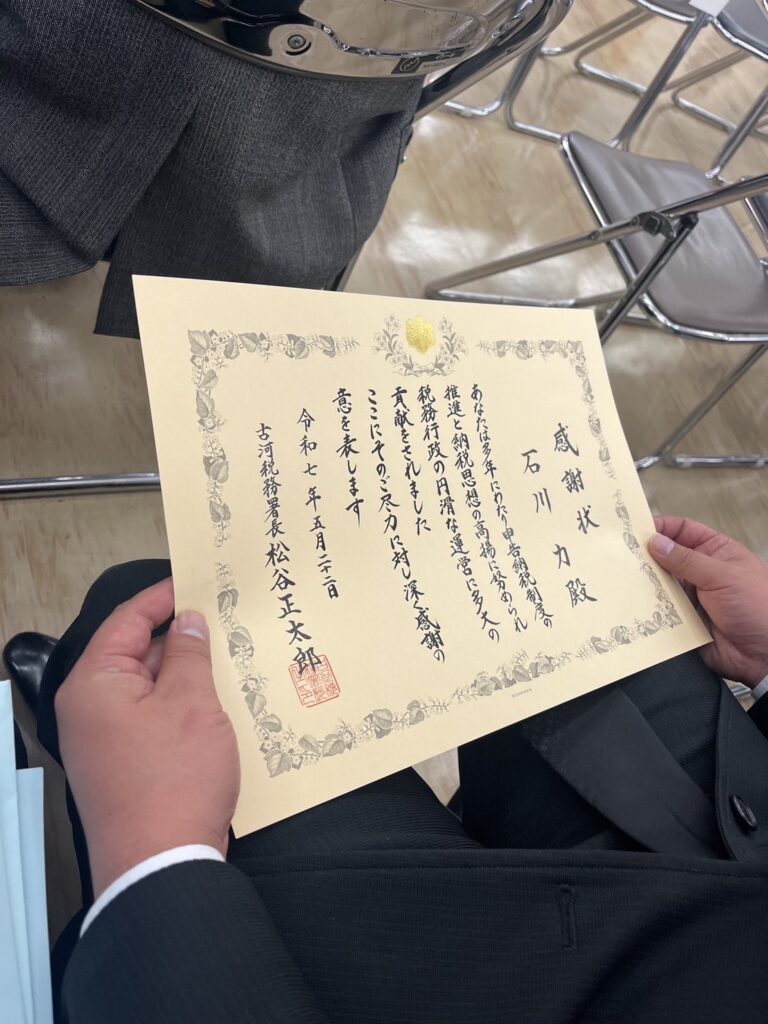 感謝状
石川 力 殿
あなたは多年にわたり申告納税制度の
推進と納税思想の高揚に努められ
税務行政の円滑な運営に多大の
貢献をされました
ここにそのご尽力に対し深く感謝の
意を表します
令和七年五月二十二日
古河税務署長 松谷正太郎